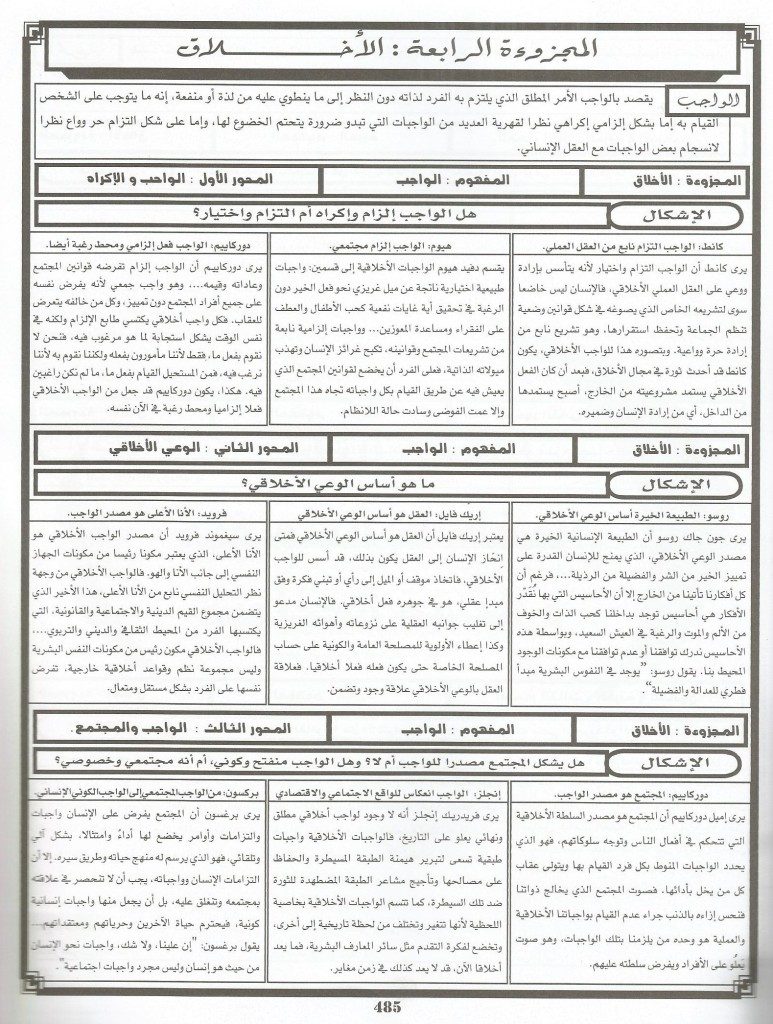 المجزوءة الرابعة : الأخلاق
الواجب
يقصد بالواجب الأمر المطلق الذي يلتزم به الفرد لذاته دون النظر إلى ما ينطوي عليه من لذة أو منفعة، إنه ما يتوجب على الشخص
القيام به إما بشكل إلزامي إكراهي نظرا لقهرية العديد من الواجبات التي تبدو ضرورة يتحتم الخضوع لها، وإما على شكل التزام حر وواع نظرا
لانسجام بعض الواجبات مع العقل الإنساني.
المجزوءة : الأخلاق
المفهوم : الواجب
المحور الأول : الواجب و الإكراه
الإشكال
هل الواجب إلزام وإكراه أم التزام واختيار؟
كانط: الواجب التزام نابع من العقل العملي.
يرى كانط أن الواجب التزام واختيار لأنه يتأسس بإرادة
ووعي على العقل العملي الأخلاقي، فالإنسان ليس خاضعا
سوى لتشريعه الخاص الذي يصوغه في شكل قوانين وضعية
تنظم الجماعة وتحفظ استقرارها، وهو تشريع نابع من
إرادة حرة وواعية. وبتصوره هذا للواجب الأخلاقي، يكون
كانط قد أحدث ثورة في مجال الأخلاق، فبعد أن كان الفعل
الأخلاقي يستمد مشروعيته من الخارج، أصبح يستمدها
من الداخل، أي من إرادة الإنسان وضميره.
هيوم: الواجب إلزام مجتمعي.
يقسم دفيد هيوم الواجبات الأخلاقية إلى قسمين: واجبات
طبيعية اختيارية ناتجة عن ميل غريزي نحو فعل الخير دون
الرغبة في تحقيق أية غايات نفعية كحب الأطفال والعطف
على الفقراء ومساعدة المعوزين... وواجبات إلزامية نابعة
من تشريعات المجتمع وقوانينه، تكبح غرائز الإنسان وتهذب
ميولاته الذاتية، فعلى الفرد أن يخضع لقوانين المجتمع الذي
يعيش فيه عن طريق القيام بكل واجباته تجاه هذا المجتمع
وإلا عمت الفوضى وسادت حالة اللانظام.
دوركايم: الواجب فعل إلزامي ومحط رغبة أيضا.
يرى دوركايم أن الواجب إلزام تفرضه قوانين المجتمع
وعاداته وقيمه.... وهو واجب جمعي لأنه يفرض نفسه
على جميع أفراد المجتمع دون تمييز، وكل من خالفه يتعرض
للعقاب. فكل واجب أخلاقي يكتسي طابع الإلزام ولكنه في
نفس الوقت يشكل استجابة لما هو مرغوب فيه، فنحن لا
نقوم بفعل ما، فقط لأننا مأمورون بفعله ولكننا نقوم به لأننا
نرغب فيه، فمن المستحيل القيام بفعل ما، ما لم نكن راغبين
فيه. هكذا، يكون دوركايم قد جعل من الواجب الأخلاقي
فعلا إلزاميا ومحط رغبة في الآن نفسه.
المجزوءة : الأخلاق
المفهوم : الواجب
المحور الثاني : الوعي الأخلاقي
الإشكال
ما هو أساس الوعي الأخلاقي؟
روسو: الطبيعة الخيرة أساس الوعي الأخلاقي.
يرى جون جاك روسو أن الطبيعة الإنسانية الخيرة هي
مصدر الوعي الأخلاقي، الذي يمنح للإنسان القدرة على
تمييز الخير من الشر والفضيلة من الرذيلة.... فرغم أن
كل أفكارنا تأتينا من الخارج إلا أن الأحاسيس التي بها نُقَدِّر
الأفكار هي أحاسيس توجد بداخلنا كحب الذات والخوف
من الألم والموت والرغبة في العيش السعيد، وبواسطة هذه
الأحاسيس ندرك توافقنا أو عدم توافقنا مع مكونات الوجود
المحيط بنا. يقول روسو: "يوجد في النفوس البشرية مبدأ
فطري للعدالة والفضيلة".
إريك فايل: العقل هو أساس الوعي الأخلاقي
يعتبر إريك فايل أن العقل هو أساس الوعي الأخلاقي فمتى
انحاز الإنسان إلى العقل يكون بذلك، قد أسس للواجب
الأخلاقي، فاتخاذ موقف أو الميل إلى رأي أو تبني فكرة وفق
مبدإ عقلي، هو في جوهره فعل أخلاقي. فالإنسان مدعو
إلى تغليب جوانبه العقلية على نزوعاته وأهوائه الغريزية
وكذا إعطاء الأولوية للمصلحة العامة والكونية على حساب
المصلحة الخاصة حتى يكون فعله فعلا أخلاقيا. فعلاقة
العقل بالوعي الأخلاقي علاقة وجود وتضمن.
فرويد: الأنا الأعلى هو مصدر الواجب.
يرى سيغموند فرويد أن مصدر الواجب الأخلاقي هو
الأنا الأعلى، الذي يعتبر مكونا رئيسا من مكونات الجهاز
النفسي إلى جانب الأنا والهو. فالواجب الأخلاقي من وجهة
نظر التحليل النفسي نابع من الأنا الأعلى، هذا الأخير الذي
يتضمن مجموع القيم الدينية والاجتماعية والقانونية، التي
يكتسبها الفرد من المحيط الثقافي والديني والتربوي....
فالواجب الأخلاقي مكون رئيس من مكونات النفس البشرية
وليس مجموعة نظم وقواعد أخلاقية خارجية، تفرض
نفسها على الفرد بشكل مستقل ومتعال.
المجزوءة : الأخلاق
المفهوم : الواجب
المحور الثالث : الواجب والمجتمع.
الإشكال
هل يشكل المجتمع مصدرا للواجب أم لا؟ وهل الواجب منفتح وكوني، أم أنه مجتمعي وخصوصي؟
دوركايم: المجتمع هو مصدر الواجب.
يرى إميل دوركايم أن المجتمع هو مصدر السلطة الأخلاقية
التي تتحكم في أفعال الناس وتوجه سلوكاتهم، فهو الذي
يحدد الواجبات المنوط بكل فرد القيام بها ويتولى عقاب
كل من يخل بأدائها. فصوت المجتمع الذي يخالج ذواتنا
فنحس إزاءه بالذنب جراء عدم القيام بواجباتنا الأخلاقية
والعملية هو وحده من يلزمنا بتلك الواجبات، وهو صوت
يَعلُو على الأفراد ويفرض سلطته عليهم.
إنجلز: الواجب انعكاس للواقع الاجتماعي والاقتصادي
يرى فريدريك إنجلز أنه لا وجود لواجب أخلاقي مطلق
ونهائي يعلو على التاريخ، فالواجبات الأخلاقية واجبات
طبقية تسعى لتبرير هيمنة الطبقة المسيطرة والحفاظ
على مصالحها وتأجيج مشاعر الطبقة المضطهدة للثورة
ضد تلك السيطرة، كما تتسم الواجبات الأخلاقية بخاصية
اللحظية لأنها تتغير وتختلف من لحظة تاريخية إلى أخرى،
وتخضع لفكرة التقدم مثل سائر المعارف البشرية، فما يعد
أخلاقا الآن، قد لا يعد كذلك في زمن مغاير.
بركسون: من الواجب المجتمعي إلى الواجب الكوني الإنساني.
يرى برغسون أن المجتمع يفرض على الإنسان واجبات
والتزامات وأوامر يخضع لها أداءً وامتثالا، بشكل آلي
وتلقائي، فهو الذي يرسم له منهج حياته وطريق سيره. إلا أن
التزامات الإنسان وواجباته، يجب أن لا تنحصر في علاقته
بمجتمعه وتنغلق عليه، بل أن يجعل منها واجبات إنسانية
كونية، فيحترم حياة الآخرين وحرياتهم ومعتقداتهم...
يقول برغسون: "إن علينا، ولا شك، واجبات نحو الإنسان
من حيث هو إنسان وليس مجرد واجبات اجتماعية".
485